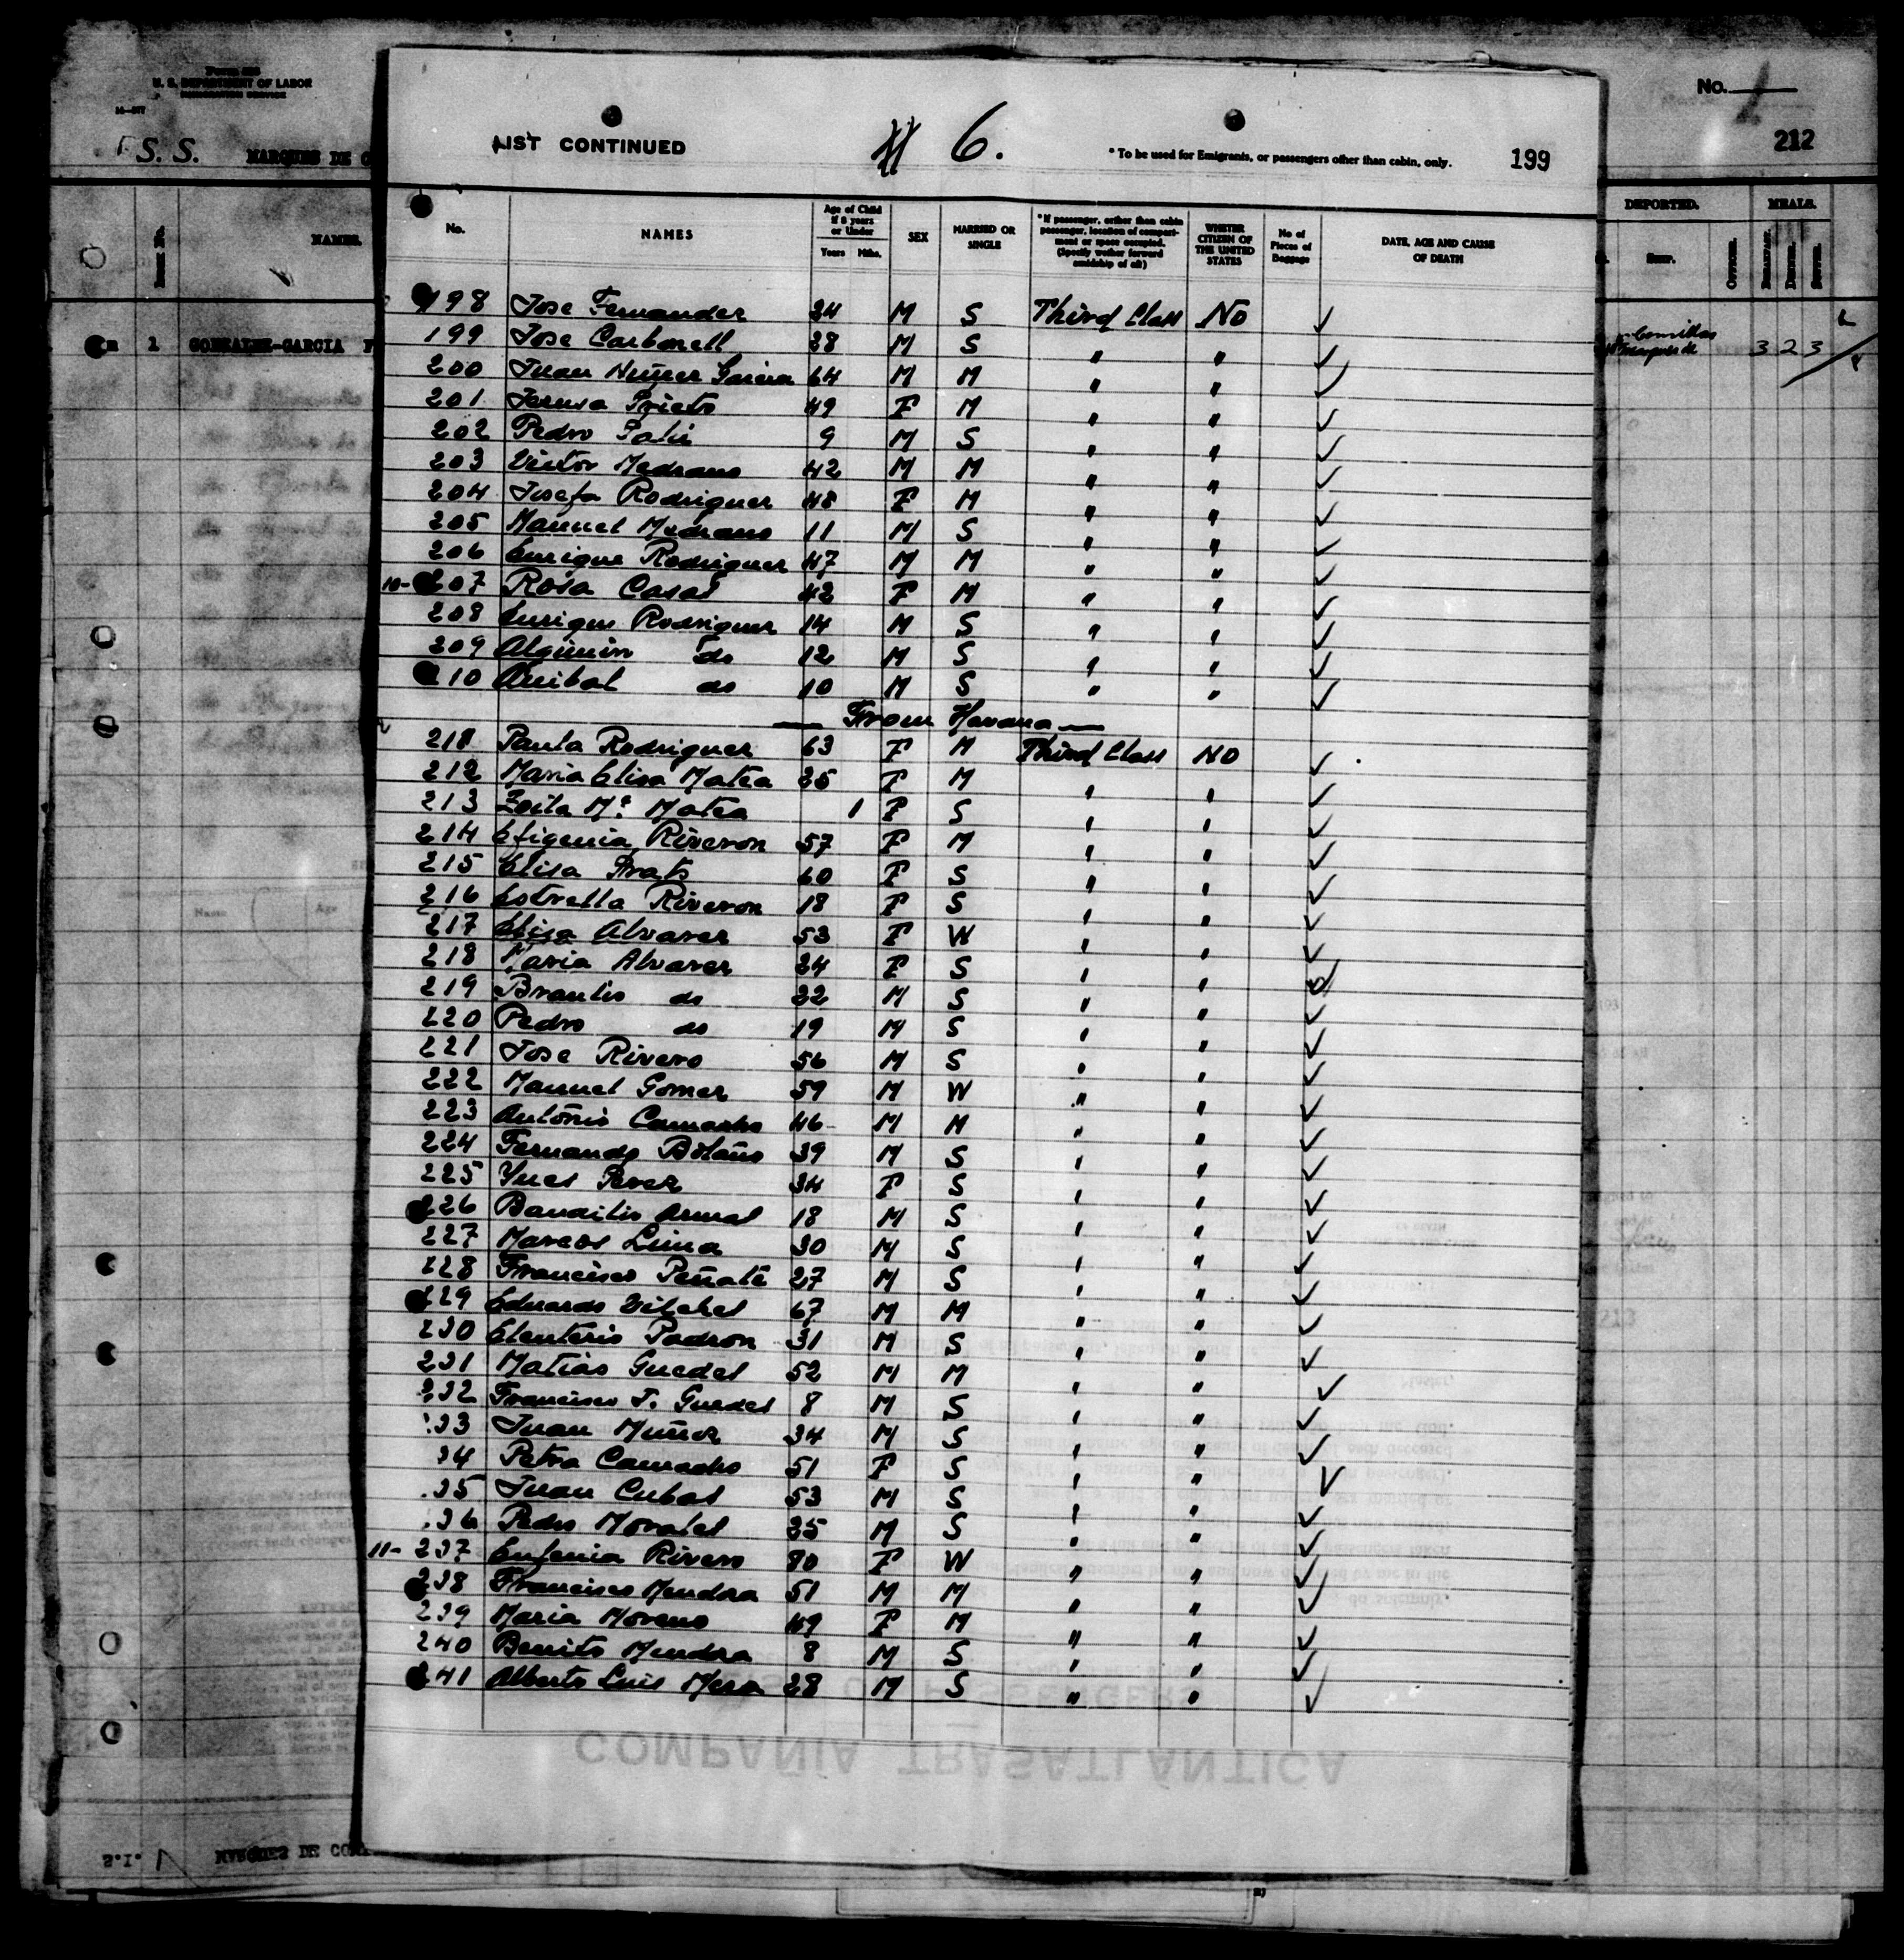 U. S. DEPARTMENT OF LABOR
S. S. MARQUES DE C
NAMES.
1 GONZALEZ-GARCIA F
No.
212
DEPORTED.
MEALS.
3 2 3
LIST CONTINUED
# 6.
* To be used for Emigrants, or passengers other than cabin, only.
199
No.
NAMES
Age of Child if 8 years or Under
Years Mths.
SEX
MARRIED OR SINGLE
* If passenger, orther than cabin passenger, location of compartment or space occupied. (Specify wether forward amidship of aft)
WHETER CITIZEN OF THE UNITED STATES
No of Pieces of Baggage
DATE, AGE AND CAUSE OF DEATH
198 Jose Fernander 24 M S Third Class No ✓
199 Jose Carbonell 28 M S " " ✓
200 Juan Nuñez Garcia 64 M M " " ✓
201 Teresa Prieto 49 F M " " ✓
202 Pedro 9 M S " " ✓
203 Victor Medrano 42 M M " " ✓
204 Josefa Rodriguez 48 F M " " ✓
205 Manuel Medrano 11 M S " " ✓
206 Enrique Rodriguez 47 M M " " ✓
10- 207 Rosa Casas 42 F M " " ✓
208 Enrique Rodriguez 14 M S " " ✓
209 do 12 M S " " ✓
210 Anibal do 10 M S " " ✓
— From Havana —
211 Paula Rodriguez 63 F M Third Class NO ✓
212 Maria Elisa Matea 25 F M " " ✓
213 Zoila Mª Matea 1 F S " " ✓
214 Efigenia Riveron 57 F M " " ✓
215 Elisa Prats 60 F S " " ✓
216 Estrella Riveron 18 F S " " ✓
217 Elisa Alvarez 53 F W " " ✓
218 Maria Alvarez 24 F S " " ✓
219 Braulio do 22 M S " " ✓
220 Pedro do 19 M S " " ✓
221 Jose Rivero 56 M S " " ✓
222 Manuel Gomez 59 M W " " ✓
223 Antonio Camacho 46 M M " " ✓
224 Fernando Bolaño 39 M S " " ✓
225 Ynes Perez 34 F S " " ✓
226 Baudilio Armas 18 M S " " ✓
227 Marcos Luina 30 M S " " ✓
228 Francisco Peñate 27 M S " " ✓
229 Eduardo Vilches 67 M M " " ✓
230 Eleuterio Padron 31 M S " " ✓
231 Matias Guedes 52 M M " " ✓
232 Francisco J. Guedes 8 M S " " ✓
233 Juan Muñoz 34 M S " " ✓
34 Petra Camacho 51 F S " " ✓
35 Juan Cubas 53 M S " " ✓
36 Pedro Morales 25 M S " " ✓
11- 237 Eufenia Rivero 80 F W " " ✓
238 Francisco Mendoza 51 M M " " ✓
239 Maria Moreno 49 F M " " ✓
240 Benito Mendoza 8 M S " " ✓
241 Alberto Luis Mesa 28 M S " " ✓
COMPAÑIA TRASATLANTICA